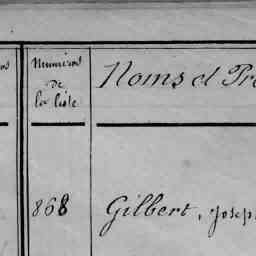 Numéros
de
la liste
Noms et Pré
868
Gilbert, Josep